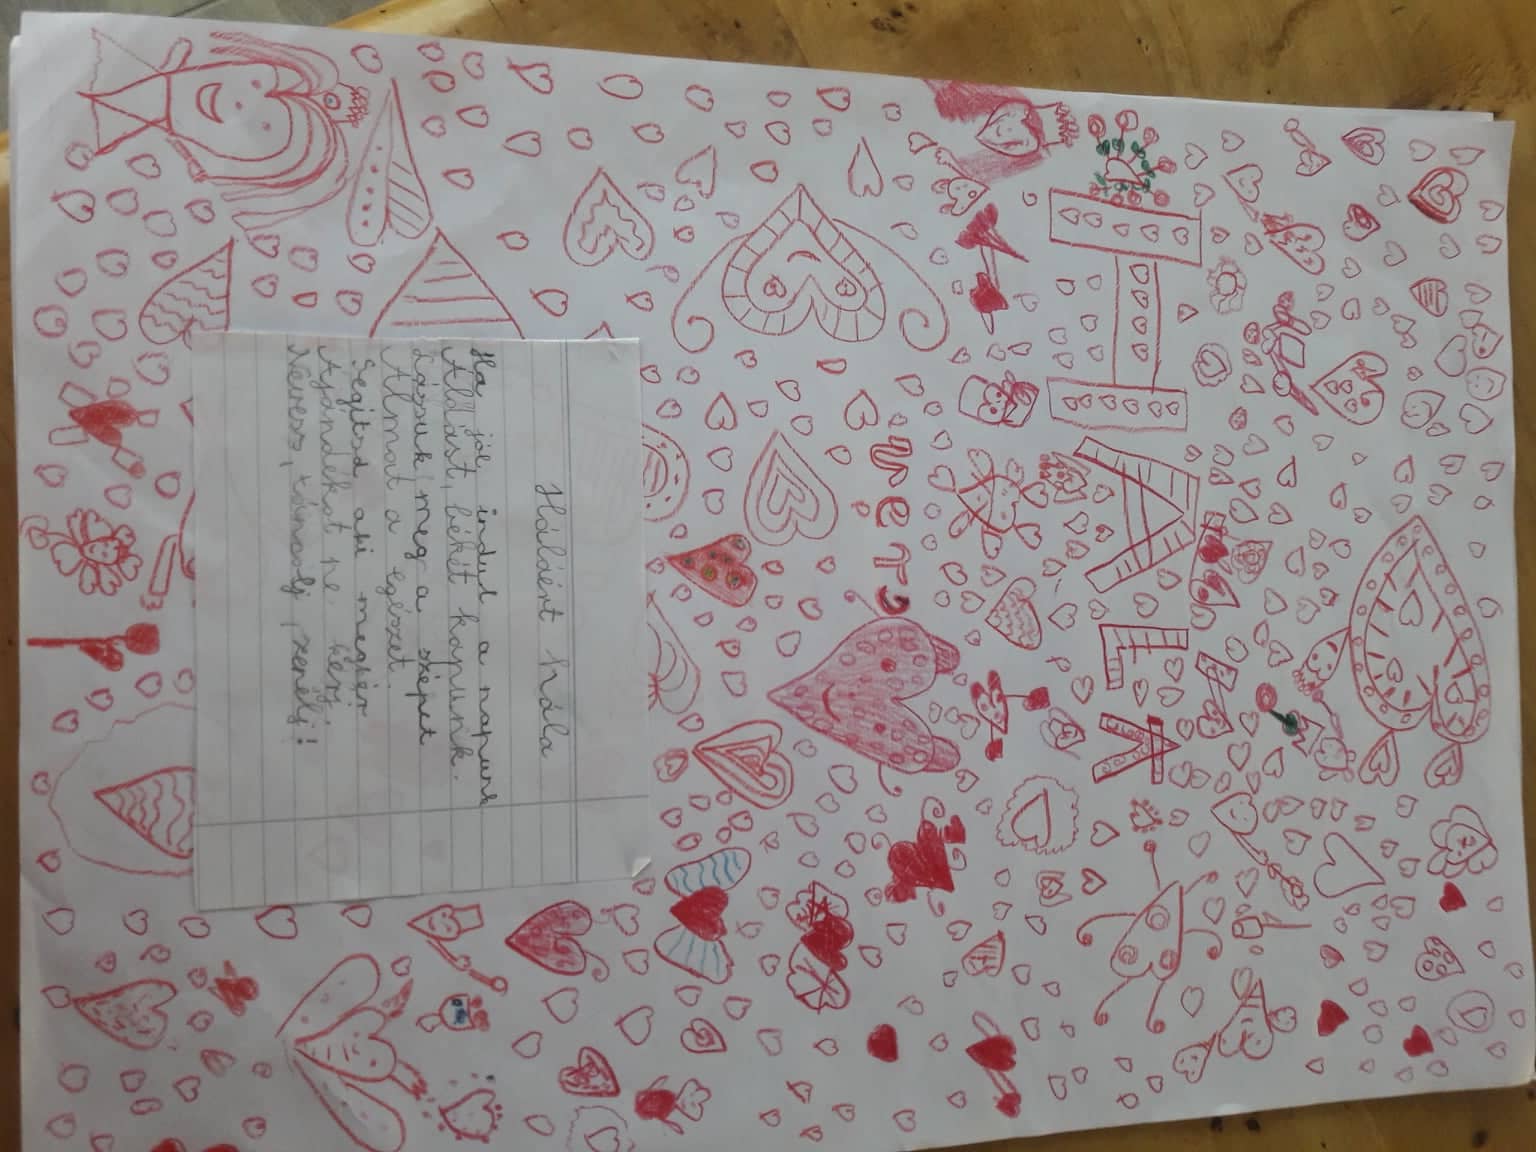 HÁLA
mert
Háláért hála
Ha jól indul a napunk
Áldást, békét kapunk.
Lássuk meg a szépet
Álmat a egészet.
Segitsd aki megkér
Ajándékot ne kérj,
Nevess, táncolj, zenélj!